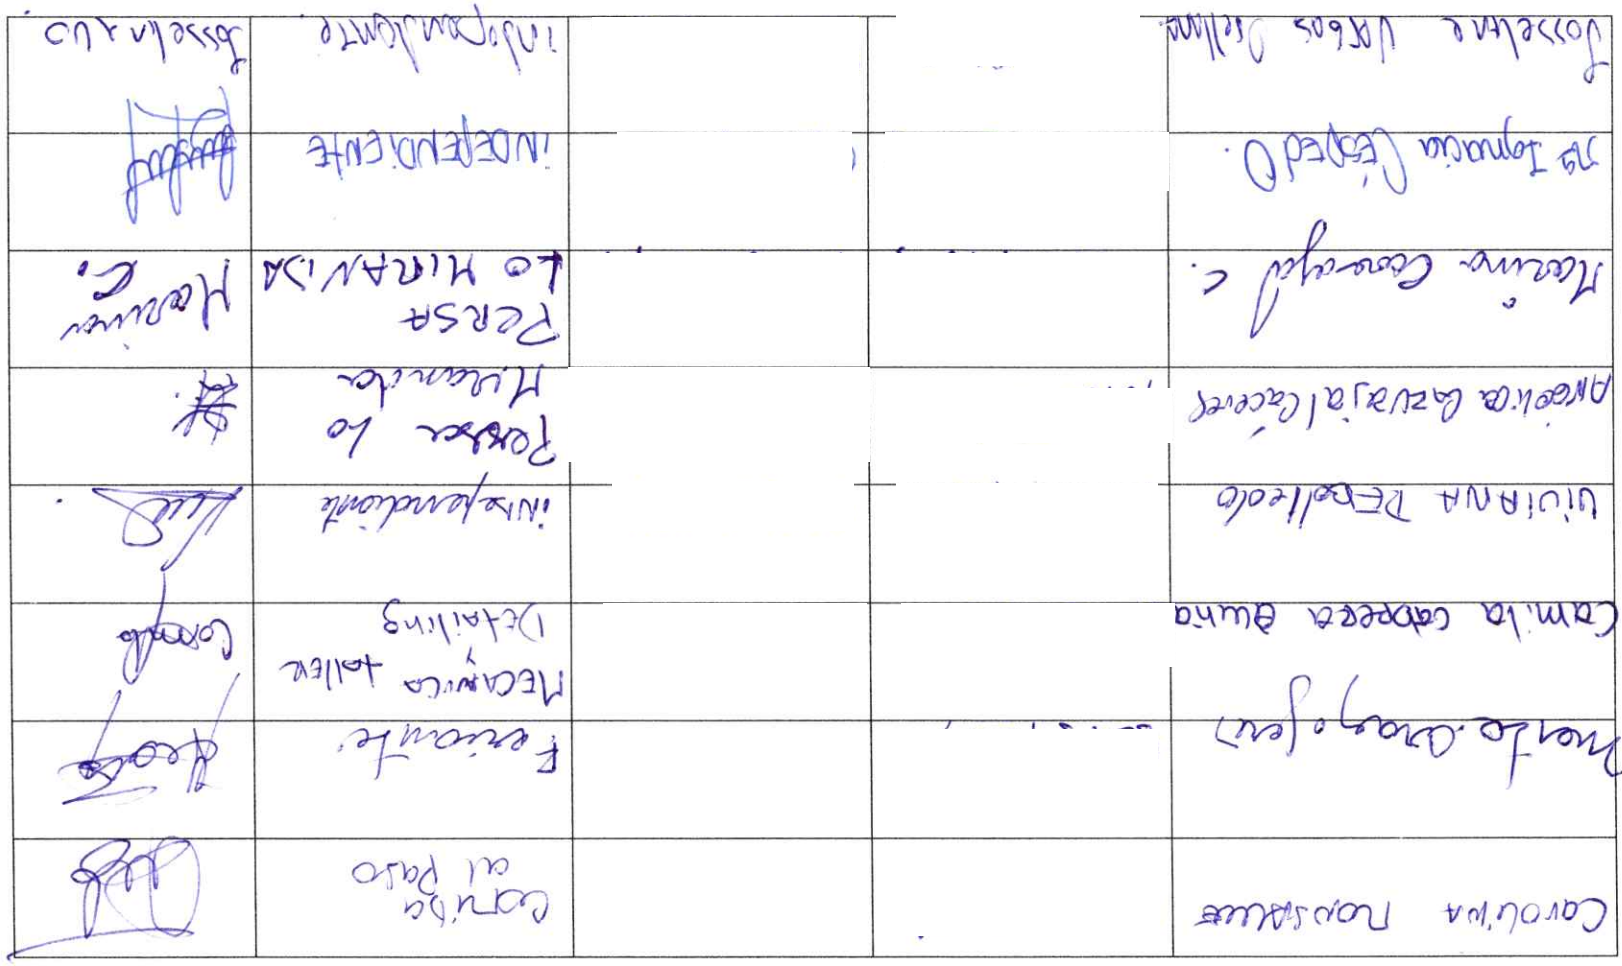 Carolina Monsalve
Comida
al Paso
Marta Araya
Feriante
Camila Cabrera
MECANICA taller
y
Detailing
Camila
ViViANA REbolledo
independiente
Angélica Carvajal Cáceres
Persa Lo
Miranda
Marina Carvajal C.
PERSA
LO MIRANDA
Marina
C.
Mª Ignacia Césped O.
iNDEPENDIENTE
Josseline Vargas Orellana
independiente.